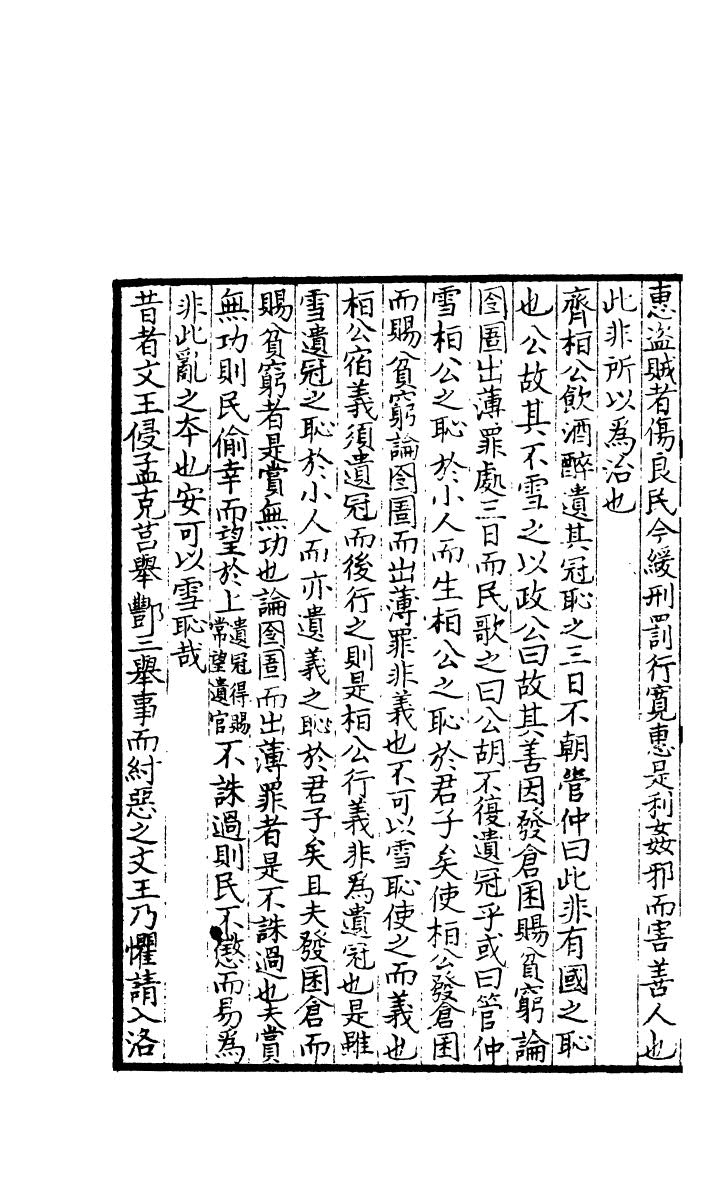 惠盗賊者傷良民今緩刑罰行寬惠是利姦邪而害善人也
此非所以爲治也
齊桓公飲酒醉遺其冠恥之三日不朝管仲曰此非有國之恥
也公故其不雪之以政公曰故其善因發倉囷賜貧窮論
囹圄出薄罪處三日而民歌之曰公胡不復遺冠乎或曰管仲
雪桓公之恥於小人而生桓公之恥於君子矣使桓公發倉囷
而賜貧窮論囹圄而出薄罪非義也不可以雪恥使之而義也
桓公宿義須遺冠而後行之則是桓公行義非爲遺冠也是雖
雪遺冠之恥於小人而亦遺義之恥於君子矣且夫發囷倉而
賜貧窮者是賞無功也論囹圄而出薄罪者是不誅過也夫賞
無功則民偷幸而望於上遺冠得賜常望遺官不誅過則民不懲而易爲
非此亂之本也安可以雪恥哉
昔者文王侵孟克莒舉酆三舉事而紂惡之文王乃懼請入洛